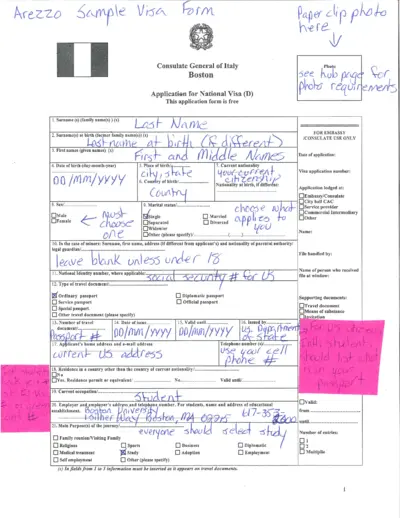 Arezzo Sample Visa Form
Paper clip photo
here
Consulate General of Italy
Boston
Photo
see hub page for
photo requirements
Application for National Visa (D)
This application form is free
1. Surname (s) (family name(s)) (x)
Last Name
FOR EMBASSY
/CONSULATE USE ONLY
2. Surname(s) at birth (former family name(s)) (x)
Last name at birth (if different)
3. First names (given names) (x)
First and Middle Names
Date of application:
4. Date of birth (day-month-year)
00/mm/yyyy
5. Place of birth
city, state
6. Country of birth
Country
7. Current nationality
your current
citizenship
Nationality at birth, if different:
Visa application number:
Application lodged at:
Embassy/Consulate
City hall CAC
Service provider
Commercial Intermediary
Other
8. Sex:
Male
Female
must
choose
one
9. Marital status:
Single
Married
Separated
Divorced
Widow/er
Other (please specify)
choose what
applies to
you
Name:
10. In the case of minors: Surname, first name, address (if different from applicant's) and nationality of parental authority/
legal guardian:
leave blank unless under 18
File handled by:
11. National Identity number, where applicable:
social security # for US
Name of person who received
file at window:
12. Type of travel document:
Ordinary passport
Diplomatic passport
Service passport
Official passport
Special passport
Other travel document (please specify)
Supporting documents:
Travel document
Means of subsistence
Invitation
13. Number of travel
document:
Passport #
14. Date of issue
00/mm/yyyy
15. Valid until
00/mm/yyyy
16. Issued by
U.S. Department
of State
17. Applicant's home address and e-mail address
current US address
Telephone number (s)
use your cell
phone #
18. Residence in a country other than the country of current nationality:
No
Yes. Residence permit or equivalent No. Valid until
19. Current occupation:
Student
20. Employer and employer's address and telephone number. For students, name and address of educational
establishment.
Boston University
Boston, MA 02215
617-353-
Valid:
from
until
21. Main Purpose(s) of the journey:
everyone should select study
Family reunion/Visiting Family
Religious
Sports
Business
Diplomatic
Medical treatment
Study
Adoption
Employment
Self employment
Other (please specify)
Number of entries:
1
2
Multiple
(x) In fields from 1 to 3 information must be inserted as it appears on travel documents.
1